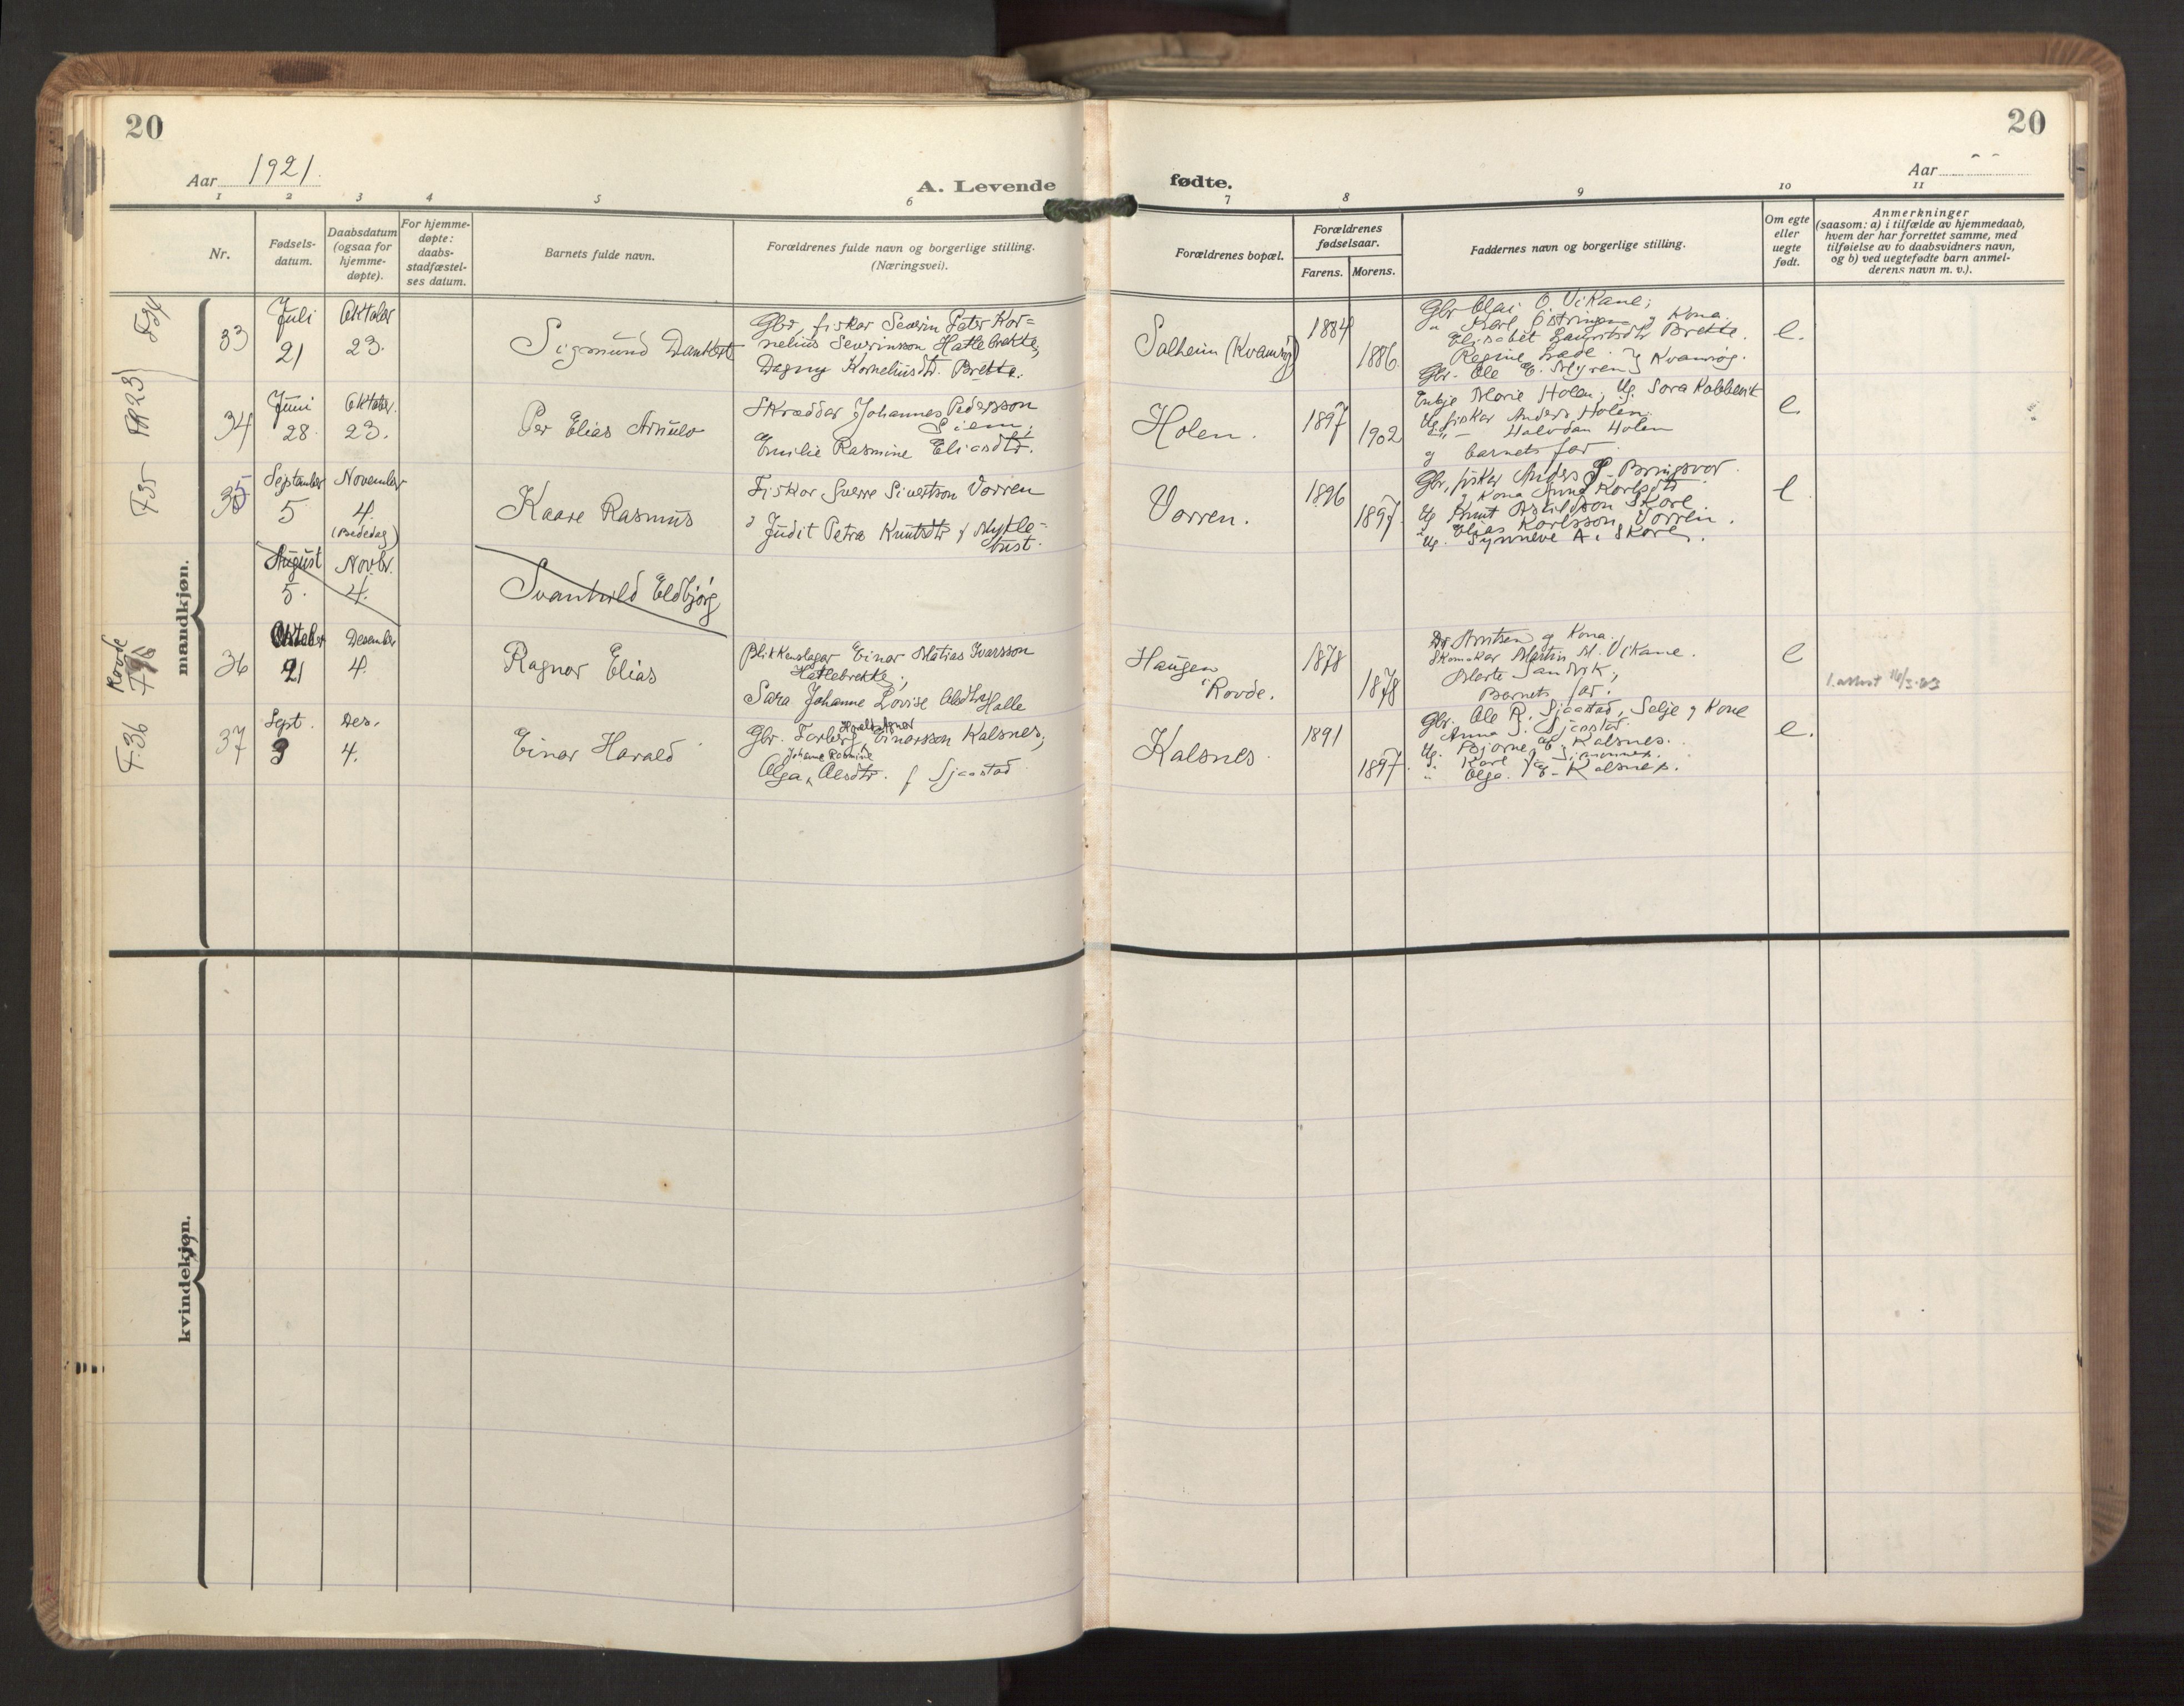 20
20
Aar 1921.
A. Levende
fødte.
Aar
1
2
3
4
5
6
7
8
9
10
11
Nr.
Fødsels-
datum.
Daabsdatum
(ogsaa for
hjemme-
døpte).
For hjemme-
døpte:
daabs-
stadfæstel-
ses datum.
Barnets fulde navn.
Forældrenes fulde navn og borgerlige stilling.
(Næringsvei).
Forældrenes bopæl.
Forældrenes
fødselsaar.
Farens.
Morens.
Faddernes navn og borgerlige stilling.
Om egte
eller
uegte
født.
Anmerkninger
(saasom: a) i tilfælde av hjemmedaab,
hvem der har forrettet samme, med
tilføielse av to daabsvidners navn,
og b) ved uegtefødte barn anmel-
derens navn m. v.).
mandkjøn.
F34
33
Juli
21
Oktober
23.
Sigmund Dankert
Gbr, fisker Severin Peter Kor=
nelius Severinsson Hatlebrekke;
Dagny Korneliusdtr. Brekke.
Salheim (Kvamsøy)
1884
1886.
Gbr. Olai O. Vikane;
" Karl Østringen og Kona.
Elisabet Lauritsdtr Brekke.
Regine
Gbr. Ole E. Myren } Kvamsøy.
e.
34
Juni
28.
Oktober.
23.
Per Elias Arnulv
Skræddar Johannes Pedersson
Emilie Rasmine Eliasdtr.
Holen.
1897
1902
Enkje Marie Holen, Ug. Sara
Ug fiskar Anders Holen.
Halvdan Holen
og barnets far.
e.
F35
35
September
5
November
4.
(Bededag)
Kaare Rasmus
Fiskar Sverre Sivertson Vorren
Judit Petra Knutsdtr f Mykle-
bust.
Vorren.
1896
1897.
Gbr, fiskar Anders P. Bringsvor.
og Kona Anna Karlsdtr
Ug Knut Askildson Skare
" Elias Karlsson, Vorren.
Ug. Synneve A. Skare.
e.
August
5.
Novbr.
4.
Svanhild Eldbjørg
Rovde
36
Oktober
21
Desember
4.
Ragnar Elias
Blikkenslagar Einar Matias Ivarsson
Hatlebrekke;
Sara Johanne Lovise Olsdtr Halle
Haugen
i Rovde.
1878
1878
Dr. Arntsen og Kona.
Skomakar Martin M. Vikane.
Marte Sandvik,
Barnets far.
e
1. attest 16/3.23
F.36
37
Sept.
3
Des.
4.
Einar Harald
Gbr. Torberg Einarsson Kalsnes;
Johanne Rasmine
Olga, Olesdtr. f Sjaastad
Kalsnes
1891
1897.
Gbr. Ole R. Sjaastad, Selje og Kone
Anna J. Sjaastad.
Ug. Bjarne E. Kalsnes.
" Karl
" Olga E. Kalsnes.
e.
kvindekjøn.